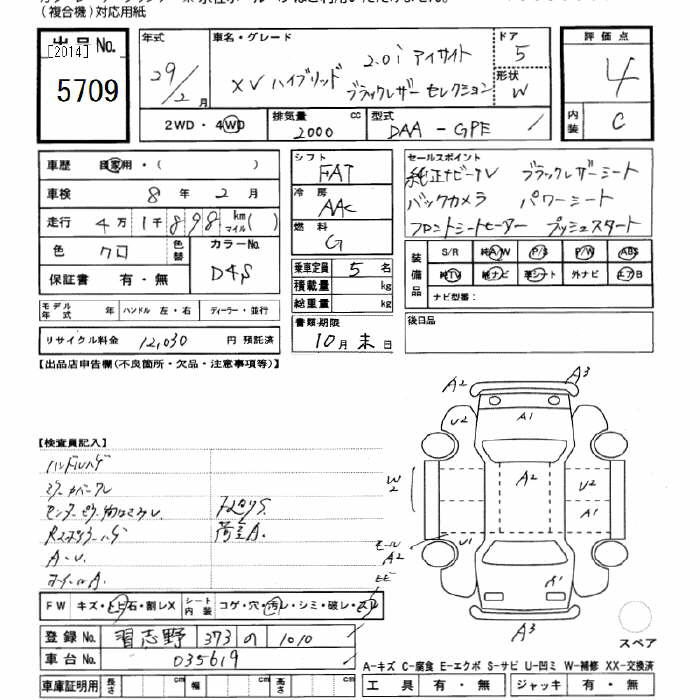 (複合機)対応用紙
出品No.
[2014]
5709
年式
29/2月
車名・グレード
2.0i アイサイト
XV ハイブリッド ブラックレザー セレクション
ドア
5
形状
W
評価点
4
内装
C
2WD・4WD
排気量
2000 cc
型式
DAA-GPE
車歴 自家用・( )
車検 8年 2月
走行 4万1千898 km マイル( )
色 クロ
色替
カラーNo.
D4S
保証書 有・無
モデル年式 年 ハンドル 左・右 ディーラー・並行
リサイクル料金 12,030 円 預託済
シフト
FAT
冷房
AAC
燃料
G
乗車定員 5 名
積載量 kg
総重量 kg
書類期限
10月末日
セールスポイント
純正ナビ・TV ブラックレザーシート
バックカメラ パワーシート
フロントシートヒーター プッシュスタート
装備品
S/R 純A/W P/S P/W ABS
純TV 純ナビ 革シート 外ナビ エアB
ナビ型番:
後日品
【出品店申告欄(不良箇所・欠品・注意事項等)】
【検査員記入】
ハンドルハゲ
A・U.
ホイールA.
A2 A3
U2 A1
A2
W2
U2
モール A2
U1
A1
A3
FW キズ・トビ石・割レX シート内装 コゲ・穴・汚レ・シミ・破レ・スレ
登録No. 習志野 373 の 1010
車台No. 035619
スペア
A-キズ C-腐食 E-エクボ S-サビ U-凹ミ W-補修 XX-交換済
車庫証明用 長さ cm 幅 cm 高さ cm
工具 有・無 ジャッキ 有・無